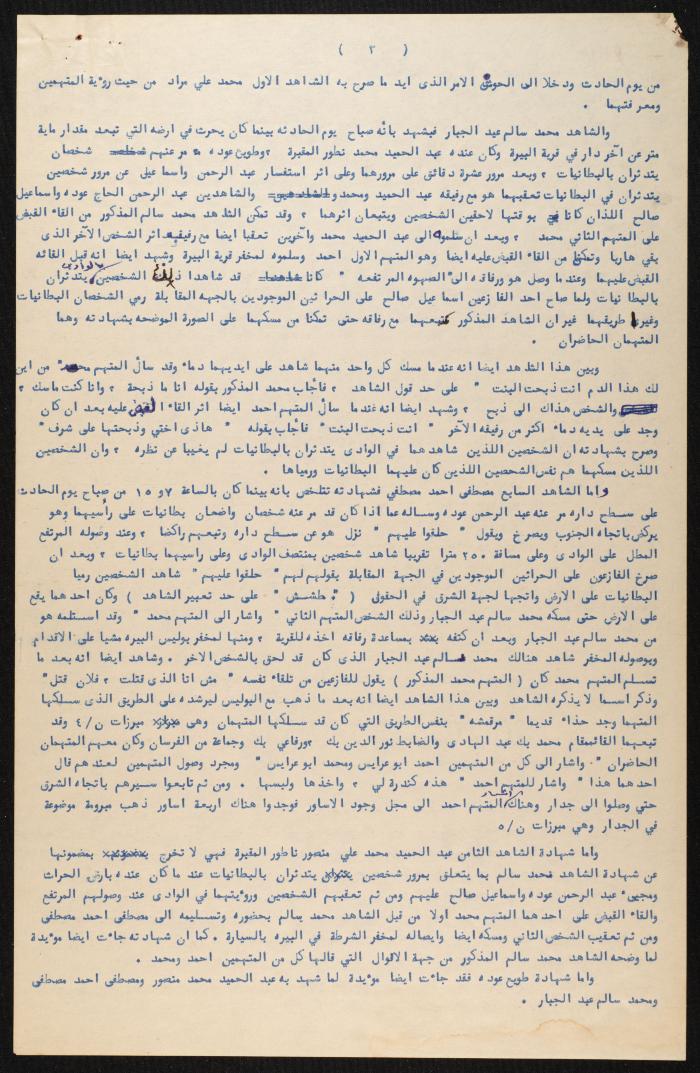 ( ٣ )
من يوم الحادث ودخلا الى الحوش الامر الذى ايد ما صرح به الشاهد الاول محمد علي مراد من حيث رؤية المتهمين
ومعرفتهما .
والشاهد محمد سالم عبد الجبار فيشهد بأنه صباح يوم الحادثه بينما كان يحرث في ارضه التي تبعد مقدار ماية
متر عن آخر دار في قرية البيرة وكان عنده عبد الحميد محمد نطور المقبرة ٢وطويع عوده مر عنهم شخصان
يتدثران بالبطانيات ٢ وبعد مرور عشرة دقائق على مرورهما وعلى اثر استفسار عبد الرحمن واسماعيل عن مرور شخصين
يتدثران في البطانيات تعقبهما هو مع رفيقه عبد الحميد ومحمد والشاهدين عبد الرحمن الحاج عوده واسماعيل
صالح اللذان كانا بوقتها لاحقين الشخصين ويتبعان اثرهما ٢ وقد تمكن الشاهد محمد سالم المذكور من القاء القبض
على المتهم الثاني محمد ٢ وبعد ان سلموه الى عبد الحميد محمد وآخرين تعقبا ايضا مع رفيقيه اثر الشخص الآخر الذى
بقي هاربا وتمكنا من القاء القبض عليه ايضا وهو المتهم الاول احمد وسلموه لمخفر قرية البيرة وشهد ايضا انه قبل القائه
القبض عليهما وعندما وصل هو ورفاقه الى الصهوه المرتفعه " كانا قد شاهدا ذلك الشخصين بالوادى يتدثران
بالبطانيات ولما صاح احد الفازعين اسماعيل صالح على الحراثين الموجودين بالجهه المقابلة رمي الشخصان البطانيات
وغيرا طريقهما غير ان الشاهد المذكور تتبعهما مع رفاقه حتى تمكنا من مسكهما على الصورة الموضحه بشهادته وهما
المتهمان الحاضران .
وبين هذا الشاهد ايضا انه عندما مسك كل واحد منهما شاهد على ايديهما دماء وقد سأل المتهم محمد " من اين
لك هذا الدم انت ذبحت البنت " على حد قول الشاهد ٢ فأجاب محمد المذكور بقوله انا ما ذبحة ٢ وانا كنت ماسك ٢
والشخص هذاك الى ذبح ٢ وشهد ايضا انه عندما سأل المتهم احمد ايضا اثر القاء القبض عليه بعد ان كان
وجد على يديه دماء اكثر من رفيقه الآخر " انت ذبحت البنت " فأجاب بقوله " هاذى اختي وذبحتها على شرف "
وصرح بشهادته ان الشخصين اللذين شاهدهما في الوادى يتدثران بالبطانيات لم يغيبا عن نظره ٢ وان الشخصين
اللذين مسكهما هم نفس الشخصين اللذين كان عليهما البطانيات ورمياها .
واما الشاهد السابع مصطفى احمد مصطفي فشهادته تتلخص بانه بينما كان بالساعة ٧ و ١٥ من صباح يوم الحادث
على سطح داره مر عنه عبد الرحمن عوده وساله عما اذا كان قد مر عنه شخصان واضحان بطانيات على رأسيهما وهو
يركض باتجاه الجنوب ويصرخ ويقول " حلقوا عليهم " نزل هو عن سطح داره وتبعهم راكضا ٢ وعند وصوله المرتفع
المطل على الوادى وعلى مسافة ٢٥٠ مترا تقريبا شاهد شخصين بمنتصف الوادى وعلى راسيهما بطانيات ٢ وبعد ان
صرخ الفازعون على الحراثين الموجودين في الجهة المقابلة بقولهم لهم " حلقوا عليهم " شاهد الشخصين رميا
البطانيات على الارض واتجها لجهة الشرق في الحقول ( " طشش " على حد تعبير الشاهد ) وكان احدهما يقع
على الارض حتى مسكه محمد سالم عبد الجبار وذلك الشخص المتهم الثاني " واشار الى المتهم محمد " وقد استلمه هو
من محمد سالم عبد الجبار وبعد ان كتفه بمساعدة رفاقه اخذه للقرية ٢ ومنها لمخفر بوليس البيره مشيا على الاقدام
وبوصوله المخفر شاهد هنالك محمد سالم عبد الجبار الذى كان قد لحق بالشخص الاخر . وشاهد ايضا انه بعد ما
تسلم المتهم محمد كان ( المتهم محمد المذكور ) يقول للفازعين من تلقاء نفسه " مش انا الذى قتلت ٢ فلان قتل "
وذكر اسما لا يذكره الشاهد وبين هذا الشاهد ايضا انه بعد ما ذهب مع البوليس ليرشده على الطريق الذى سلكها
المتهما وجد حذاء قديما " مرقمشه " بنفس الطريق التي كان قد سلكها المتهمان وهى مبرزات ن/٤ وقد
تبعهما القائمقام محمد بك عبد الهادى والضابط نور الدين بك ٢ورفاعي بك وجماعة من الفرسان وكان معهم المتهمان
الحاضران " واشار الى كل من المتهمين احمد ابو عرايس ومحمد ابو عرايس " ومجرد وصول المتهمين لعندهم قال
احدهما هذا " واشار للمتهم احمد " هذه كندرة لي ٢ واخذها ولبسها . ومن ثم تابعوا سيرهم باتجاه الشرق
حتي وصلوا الى جدار وهناك اشار المتهم احمد الى محل وجود الاساور فوجدوا هناك اربعة اساور ذهب مبرومة موضوعة
في الجدار وهي مبرزات ن/٥
واما شهادة الشاهد الثامن عبد الحميد محمد علي منصور ناطور المقبرة فهي لا تخرج بمضمونها
عن شهادة الشاهد محمد سالم بما يتعلق بمرور شخصين يتدثران بالبطانيات عند ما كان عنده بارض الحراث
ومجيء عبد الرحمن عوده واسماعيل صالح عليهم ومن ثم تعقبهم الشخصين ورويتهما في الوادى عند وصولهم المرتفع
والقاء القبض على احدهما المتهم محمد اولا من قبل الشاهد محمد سالم بحضوره وتسليمه الى مصطفى احمد مصطفى
ومن ثم تعقيب الشخص الثاني ومسكه ايضا وايصاله لمخفر الشرطة في البيره بالسيارة . كما ان شهادته جاءت ايضا مويدة
لما وضحه الشاهد محمد سالم المذكور من جهة الاقوال التي قالها كل من المتهمين احمد ومحمد .
واما شهادة طويع عوده فقد جاءت ايضا مويدة لما شهد به عبد الحميد محمد منصور ومصطفى احمد مصطفى
ومحمد سالم عبد الجبار .